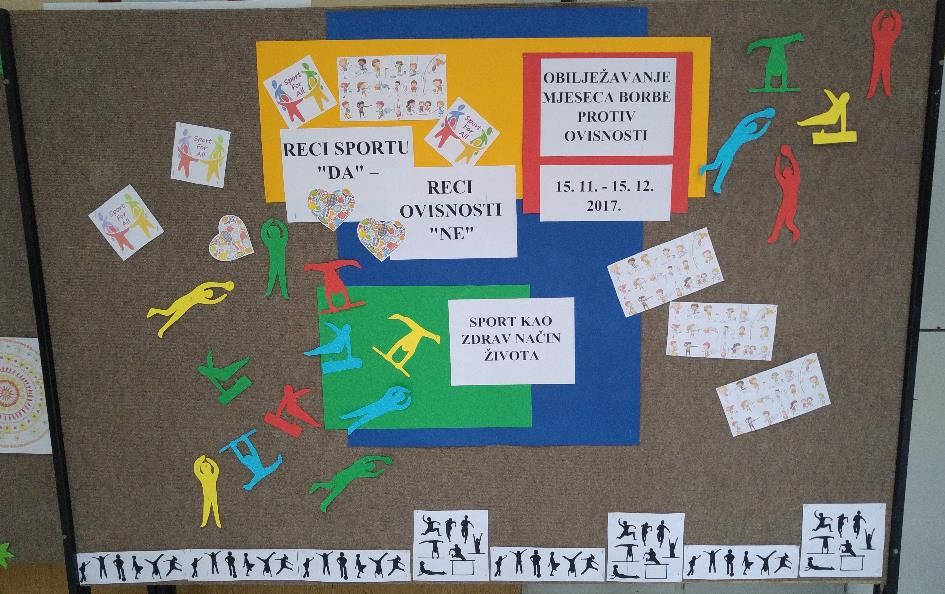 Sport
For
All
Sport
For
All
Sport
For
All
Sport
For
All
OBILJEŽAVANJE
MJESECA BORBE
PROTIV
OVISNOSTI
15. 11. - 15. 12.
2017.
RECI SPORTU
"DA" –
RECI
OVISNOSTI
"NE"
SPORT KAO
ZDRAV NAČIN
ŽIVOTA